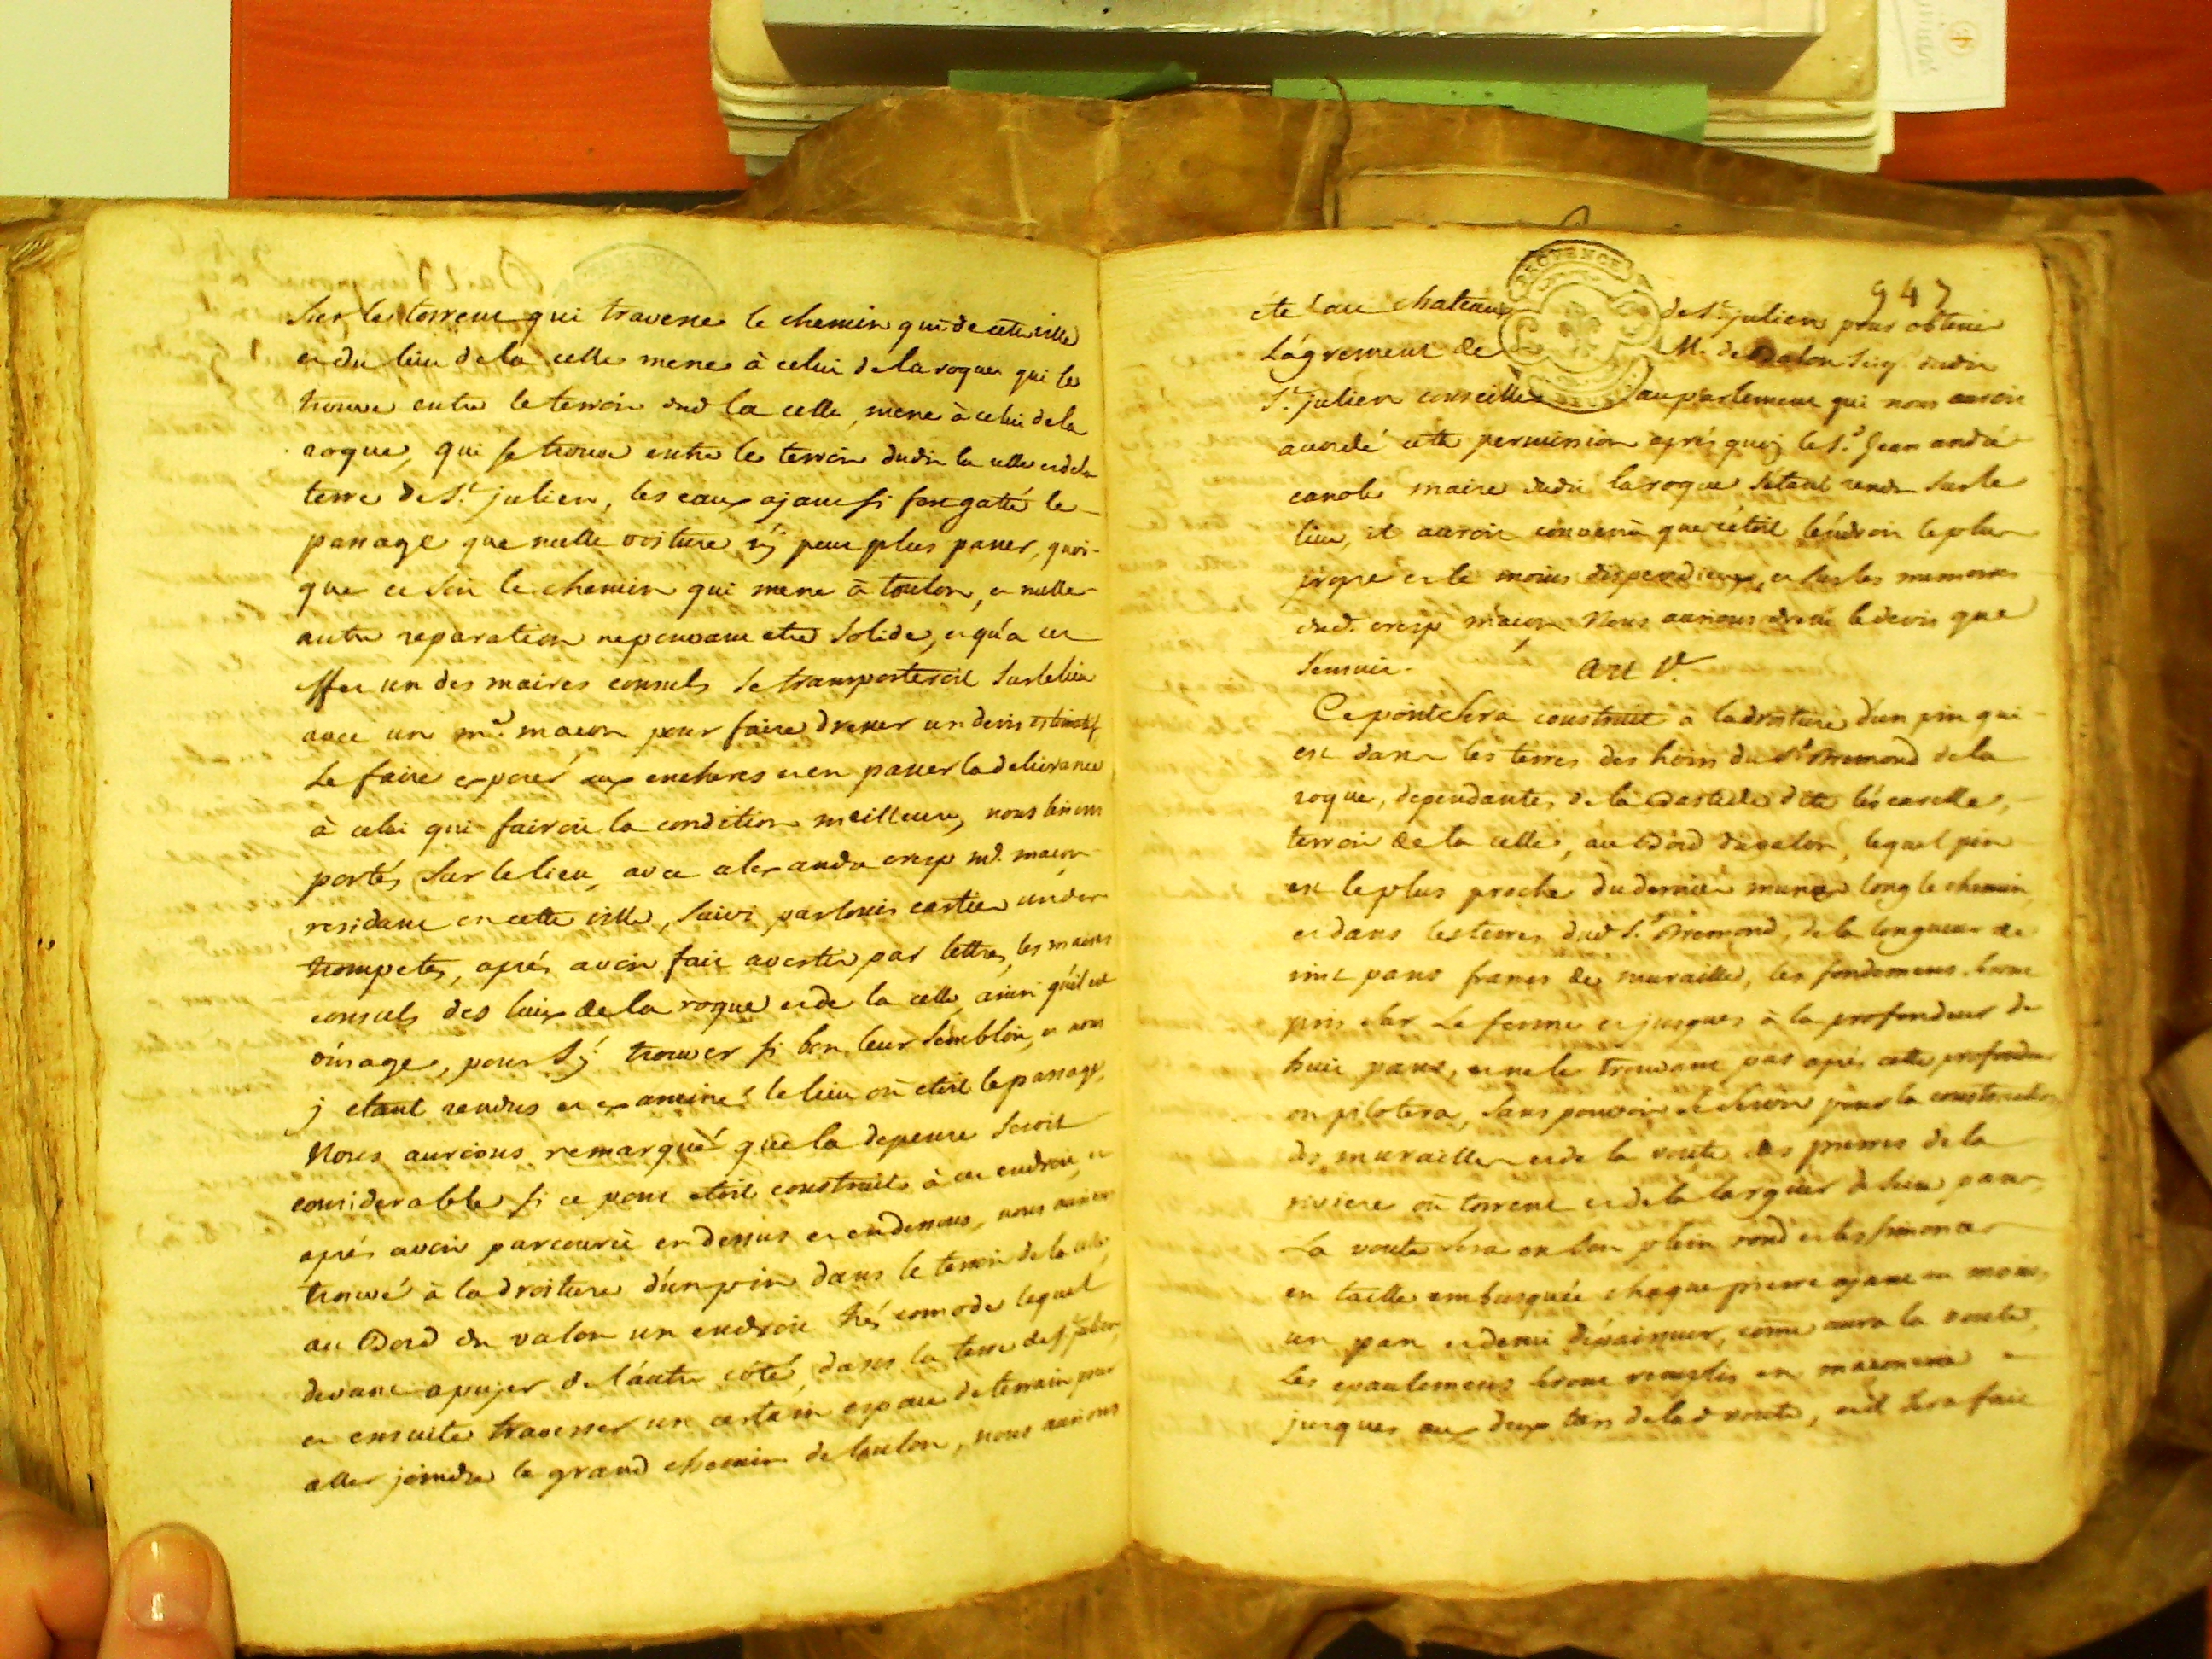 Sur le torrent qui traverse le chemin qui de cette ville
et du lieu de la celle mene à celui de la roque qui se
trouve entre le terroir dud la celle, mene à celui de la
roque, qui se trouve entre le terroir dudit la celle et de la
terre de St julien, les eaux ajant si fort gatté le
passage que nulle voiture n'j peut plus passer, quoi-
que ce soit le chemin qui mene à toulon, et nulle
autre reparation ne pouvant etre solide, et qu'a cet
effet un des maires consuls se transporteroit sur le lieu
avec un me. macon pour faire dresser un devis estimatif
le faire exposer aux encheres et en passer la delivrance
à celui qui fairoit la condition meilleure, nous
portés sur le lieu, avec alexandre cresp me. macon
residant en cette ville, suivi par louis cartier
trompete, aprés avoir fait avertir par lettre, les maires
consuls des lieux de la roque et de la celle, ainsi qu'il est
d'usage, pour s'j trouver si bon leur sembloit, et nous
j etant rendus et examiné le lieu où etoit le passage,
Nous aurions remarqué que la depense seroit
considerable si ce pont etoit construit à cet endroit, et
aprés avoir parcouru en dessus et en dessous, nous aurions
trouvé à la droiture d'un pin dans le terroir de la celle
au bord du valon un endroit trés comode lequel
devant apujer de l'autre côté, dans la terre de St julien
et ensuite traverser un certain espace de terrain pour
aller joindre le grand chemin de toulon, nous aurions
947
eté au chateau de St julien pour obtenir
L'ágrement de M. de seig. dudit
St julien conseiller au parlement qui nous auroit
accordé cette permission aprés quoj le Sr. Jean andré
canole maire dudit la roque s'étant rendu sur le
lieu, il auroit convenu que c'étoit l'endroit le plus
propre et le moins dispendieux, et sur les memoires
dud. cresp macon Nous aurions dressé le devis que
s'ensuit. art 1er.
Ce pont sera construit à la droiture d'un pin qui
est dans les terres des hoirs du Sr Bremond de la
roque, dependantes de la bastide dite
terroir de la celle, au bord du valon, lequel pin
est le plus proche du dernier long le chemin
et dans les terres dud Sr. Bremond, de la longueur de
vint pans francs de muraille, les fondemens seront
pris sur le ferme et jusques à la profondeur de
huit pans, et ne le trouvant pas aprés cette profondeur
on pilotera, sans pouvoir se servir pour la construction
des murailles et de la voute des pierres de la
riviere ou torrent et de la largeur de pans,
La voute sera en son plein rond et les
en taille embusquée chaque pierre ajant au moins
un pan et demi d'épaisseur, come aura la voute,
Les epaulemens seront remplis en maçonnerie
jusques aux deux tiers de lad voute, et il sera fait